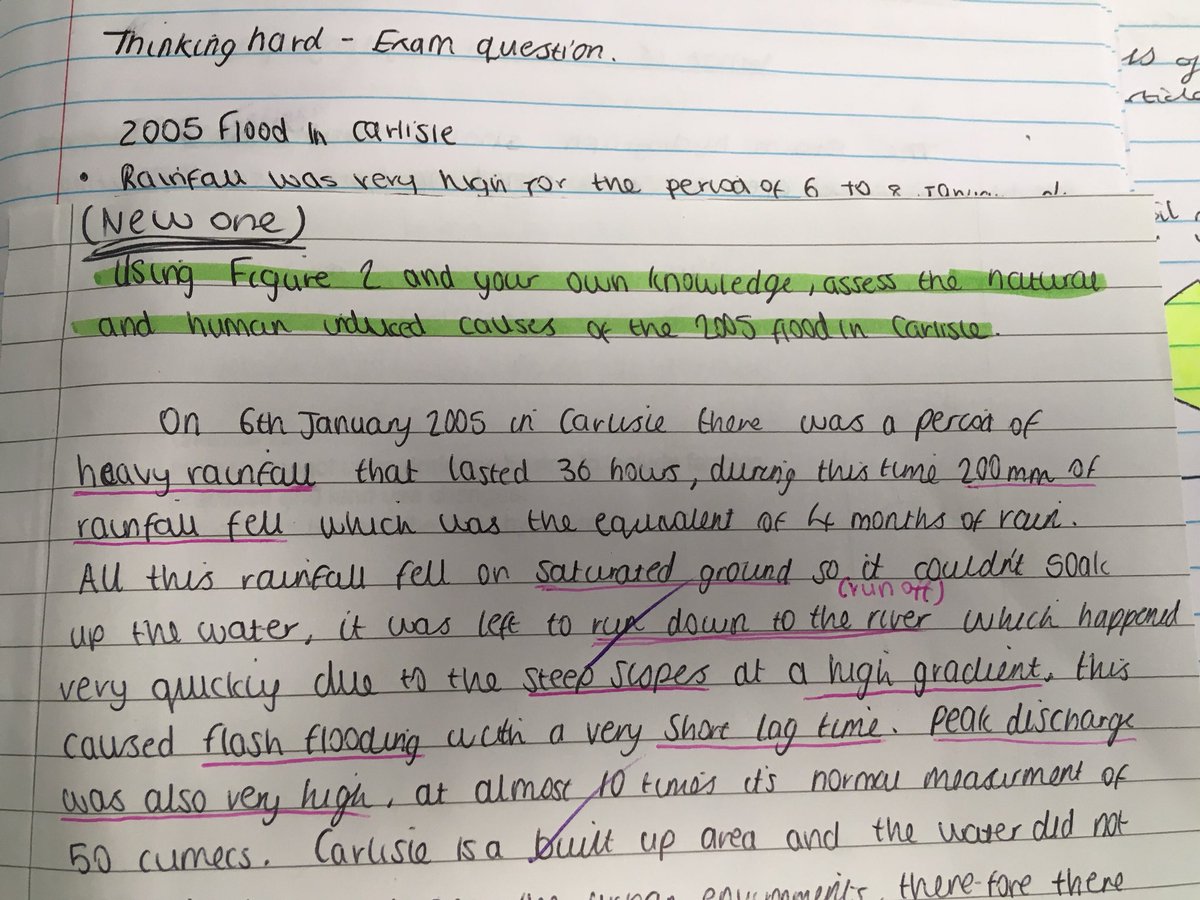 Thinking hard - Exam question.
is of
2005 flood in Carlisle
• Rainfall was very high for the period of 6 to 8
(New one)
Using Figure 2 and your own knowledge, assess the natural
and human induced causes of the 2005 flood in Carlisle.
On 6th January 2005 in Carlisle there was a period of
heavy rainfall that lasted 36 hours, during this time 200mm of
rainfall fell which was the equivalent of 4 months of rain.
All this rainfall fell on saturated ground so it couldn't soak
(run off)
up the water, it was left to run down to the river which happened
very quickly due to the steep slopes at a high gradient, this
caused flash flooding with a very short lag time. Peak discharge
was also very high, at almost 10 times it's normal measurment of
50 cumecs. Carlisle is a built up area and the water did not
environments, there-fore there